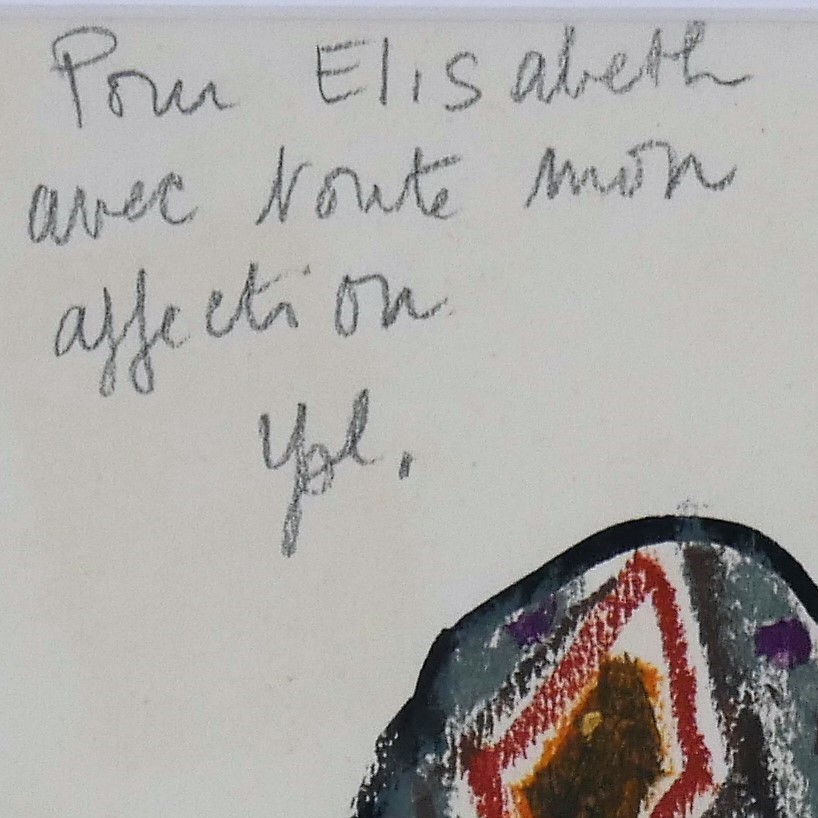 Pour Elisabeth
avec toute mon
affection
Yol.